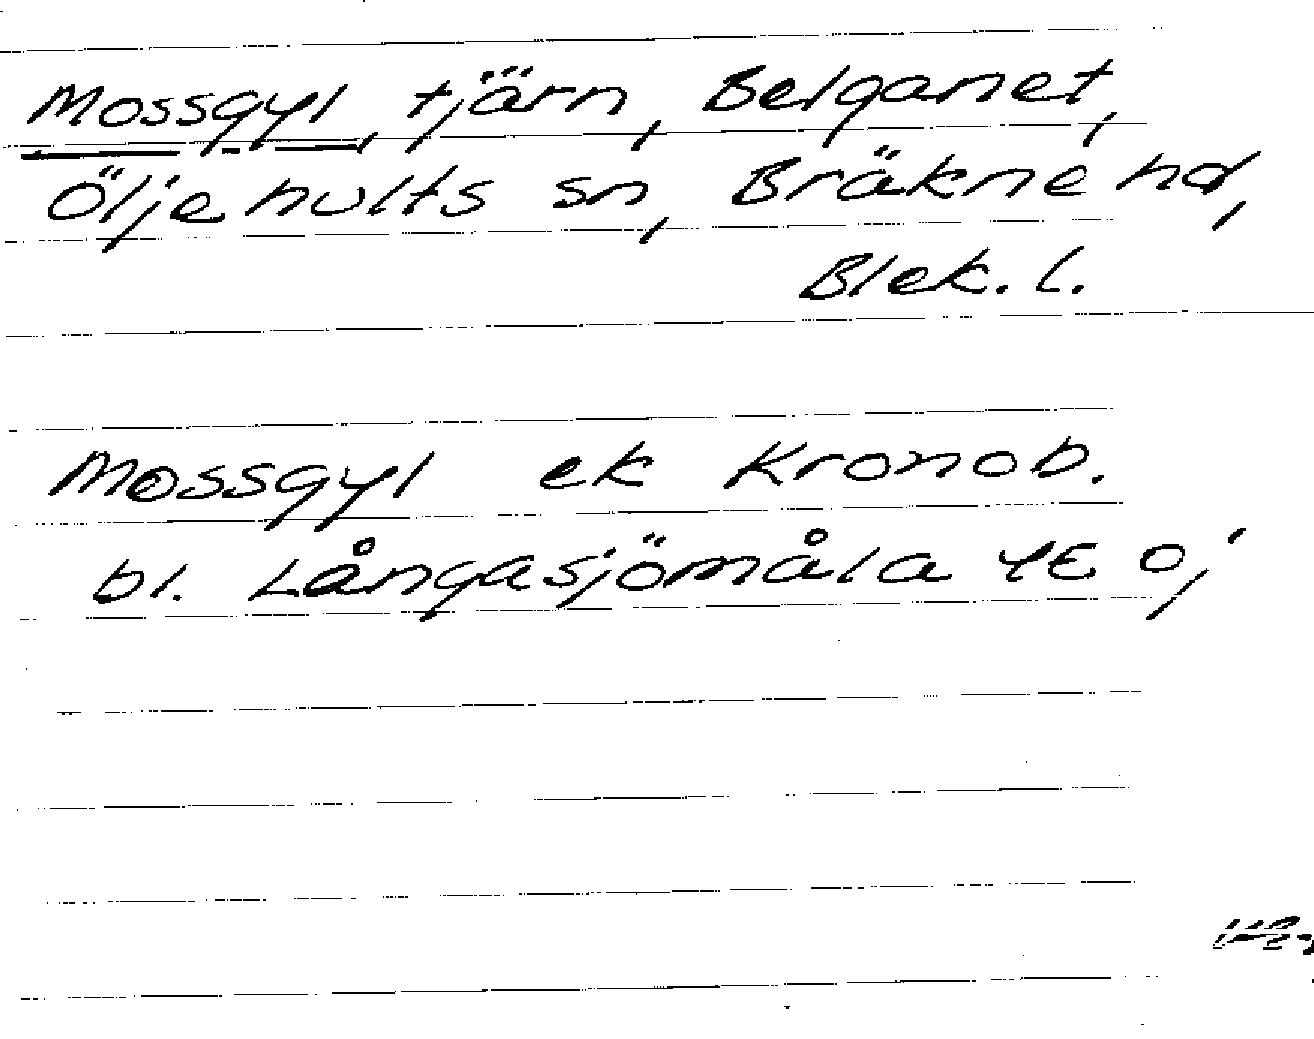 Mossgyl, tjärn, Belganet,
Öljehults sn, Bräkne hd,
Blek. l.
Mossgyl ek Kronob.
bl. Långasjömåla 4E oj